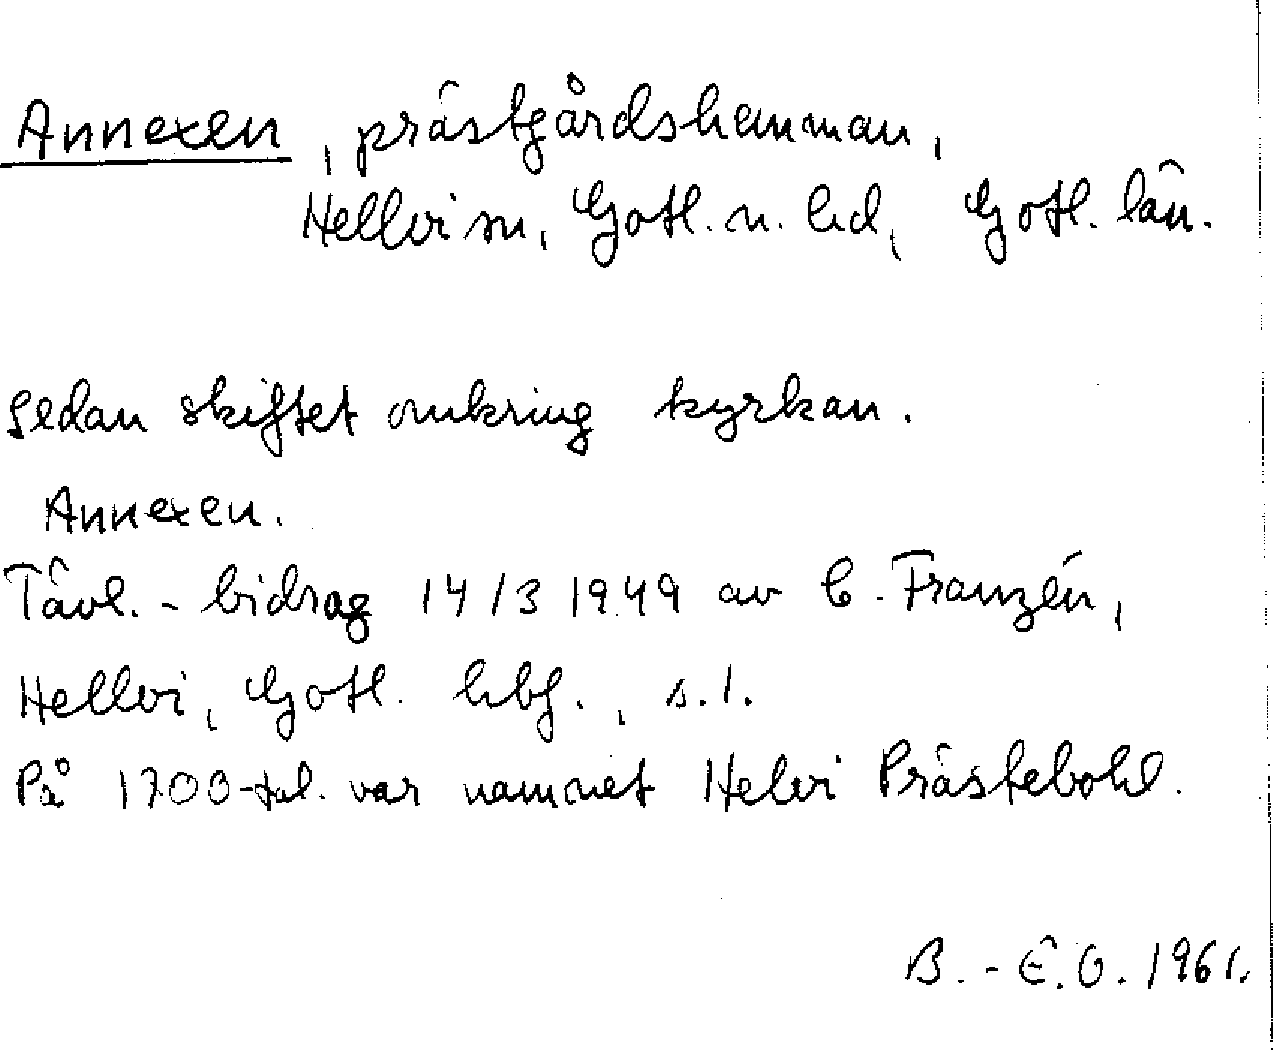 Annexen, prästgårdshemman,
Hellvi sn, Gotl. n. hd, Gotl. län.
Sedan skiftet omkring kyrkan.
Annexen.
Tävl.-bidrag 14/3 1949 av C. Franzén,
Hellvi, Gotl. hbf., s.1.
På 1700-tal. var namnet Helvi Prästebohl.
B.-E.O. 1961.